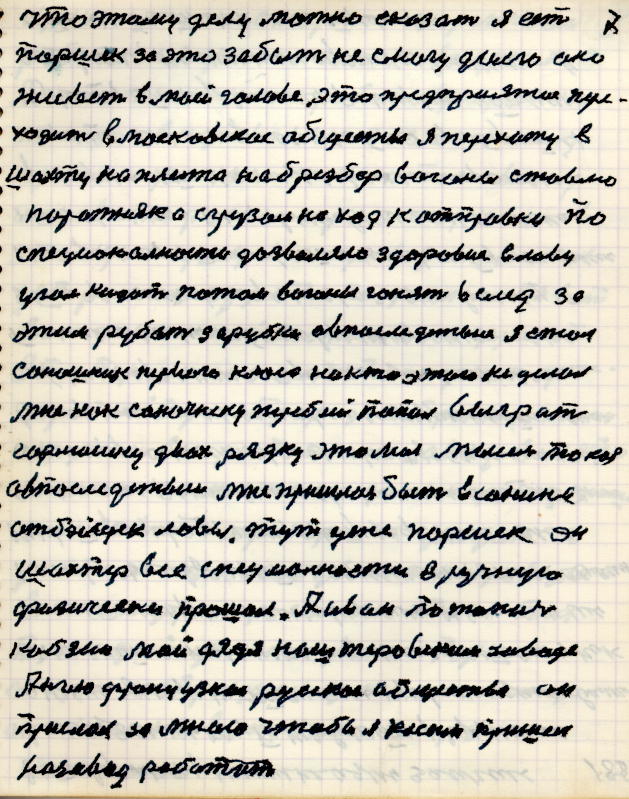 Что этому делу можно сказат я ет 7
поршек за это забыт не смогу долго оно
живет в моей голове, это предприятие пре-
ходит в московские общества я перхожу в
Шахту на плита на бразбор вагоны ставлю
порожняка с грузом на ход к отправки По
специоналности дозваляло здоровие в лаву
угол кидат потом вагоны гонят в след за
этим рубат зарубки овпоследствие я стал
саношник первого класа никто этого не делал
мне как саночнику жребий попал выиграт
гормошку двох рядку это моя мысль такая
овпоследствии мне пришлос быт в
отбойщек лавы. тут уже поршек он
Шахтер все специалности в ручную
физически прошол. А Иван Потапич
Кобзин мой дядя на заводе
Англо француское руское общества он
прислал за мною чтобы я к ним пришел
на завод работат